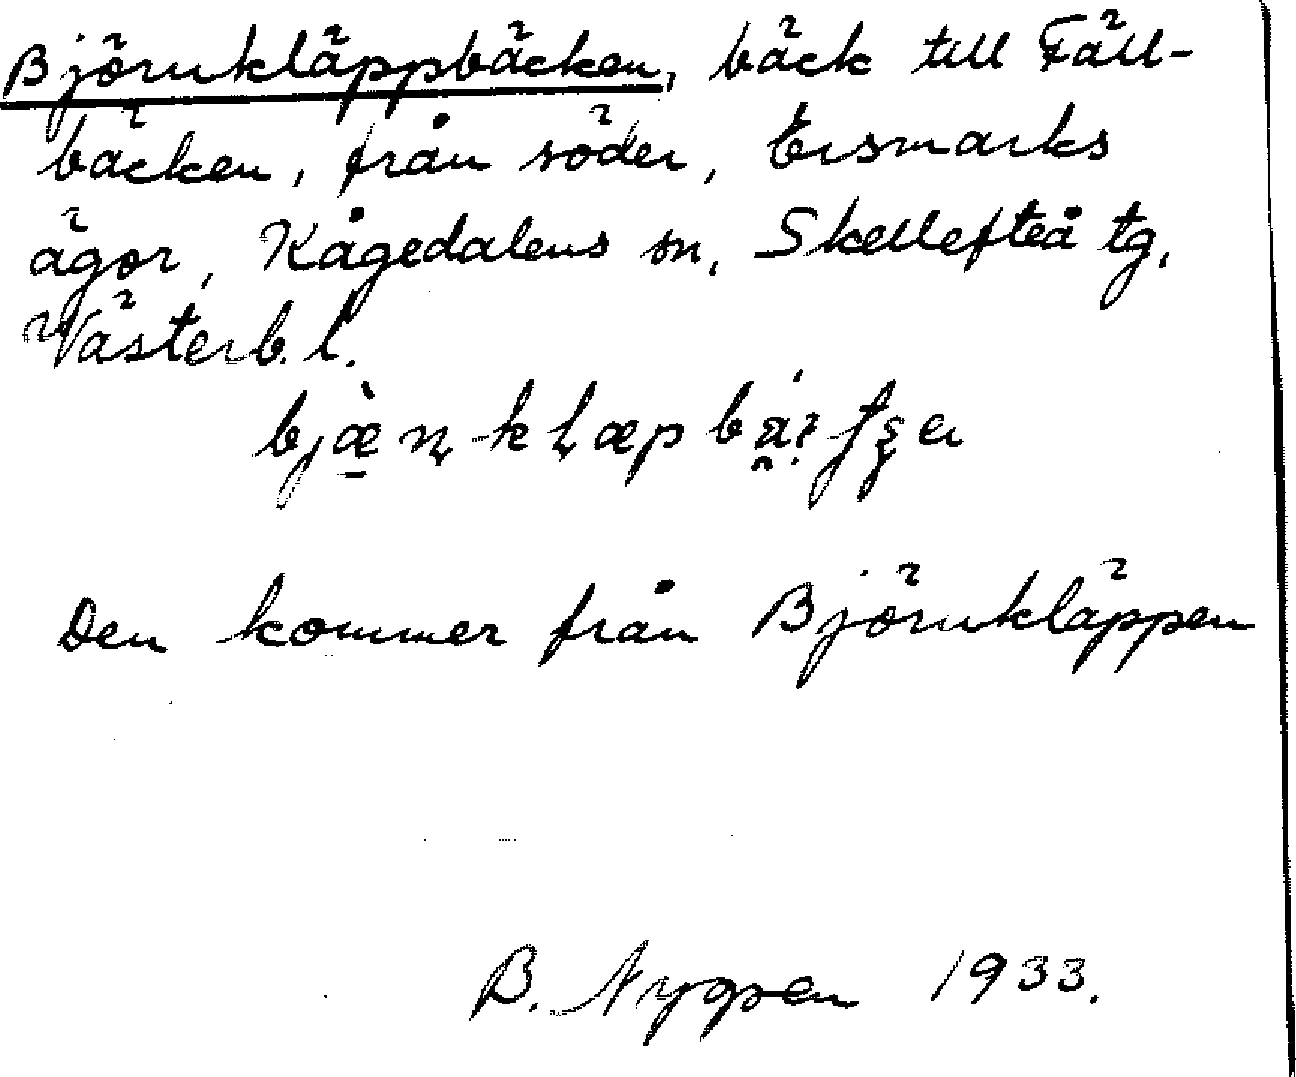 Björnkläppbäcken, bäck till Fäll-
bäcken, från söder, Ersmarks
ägor, Kågedalens sn, Skellefteå tg,
Västerb. l.
Den kommer från Björnkläppen
B. Nygren 1933.